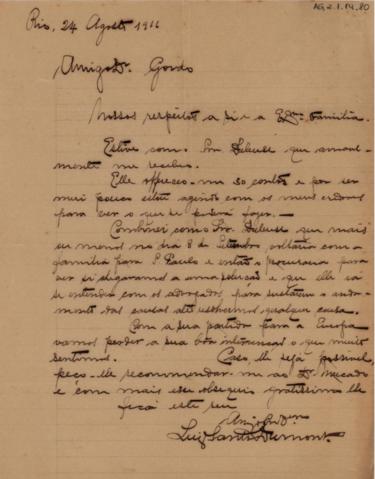 AG.2.1.14.80
Rio, 24 Agosto 1916
Amigo Dr. Gordo
Nossos respeitos a si e a Exma Familia.
Estive com o Snr que amavel-
mente me recebeu.
Elle offreceo-me 30 contos e por ser
mui pouco estou agindo com os meus credores
para ver o que se poderá fazer.—
Combinei com o Snr. que mais
ou menos no dia 8 de Setembro voltaria com a
familia para S. Paulo e então o procuraria para
ver si chegaramos a uma solução e que elle ia
se entender com os advogados para sustarem o anda-
mento das causas até resolvermos qualquer cousa.
Com a sua partida para a Europa
vamos perder a sua boa o que muito
sentimos. Caso lhe seja possivel,
peço-lhe recommendar-me ao Dr. Macedo
e com mais esse obsequio gratissimo lhe
fica este seu
Amigo
Luiz Santos Dumont.